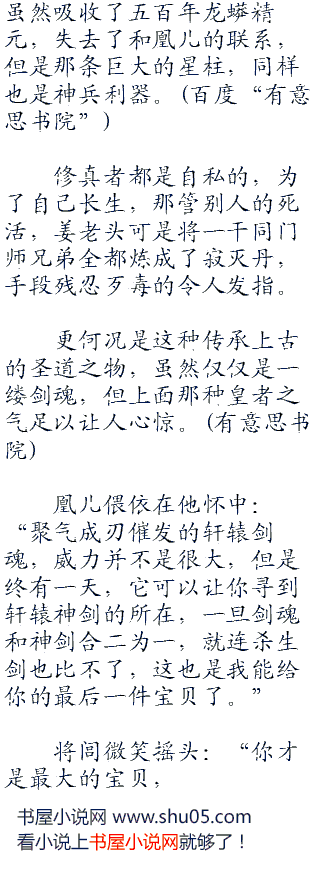 虽然吸收了五百年龙蟒精
元，失去了和凰儿的联系，
但是那条巨大的星柱，同样
也是神兵利器。(百度“有意
思书院”)
修真者都是自私的，为
了自己长生，那管别人的死
活，姜老头可是将一干同门
师兄弟全都炼成了寂灭丹，
手段残忍歹毒的令人发指。
更何况是这种传承上古
的圣道之物，虽然仅仅是一
缕剑魂，但上面那种皇者之
气足以让人心惊。(有意思书
院)
凰儿偎依在他怀中：
“聚气成刃催发的轩辕剑
魂，威力并不是很大，但是
终有一天，它可以让你寻到
轩辕神剑的所在，一旦剑魂
和神剑合二为一，就连杀生
剑也比不了，这也是我能给
你的最后一件宝贝了。”
将闾微笑摇头：“你才
是最大的宝贝，
书屋小说网 www.shu05.com
看小说上书屋小说网就够了！